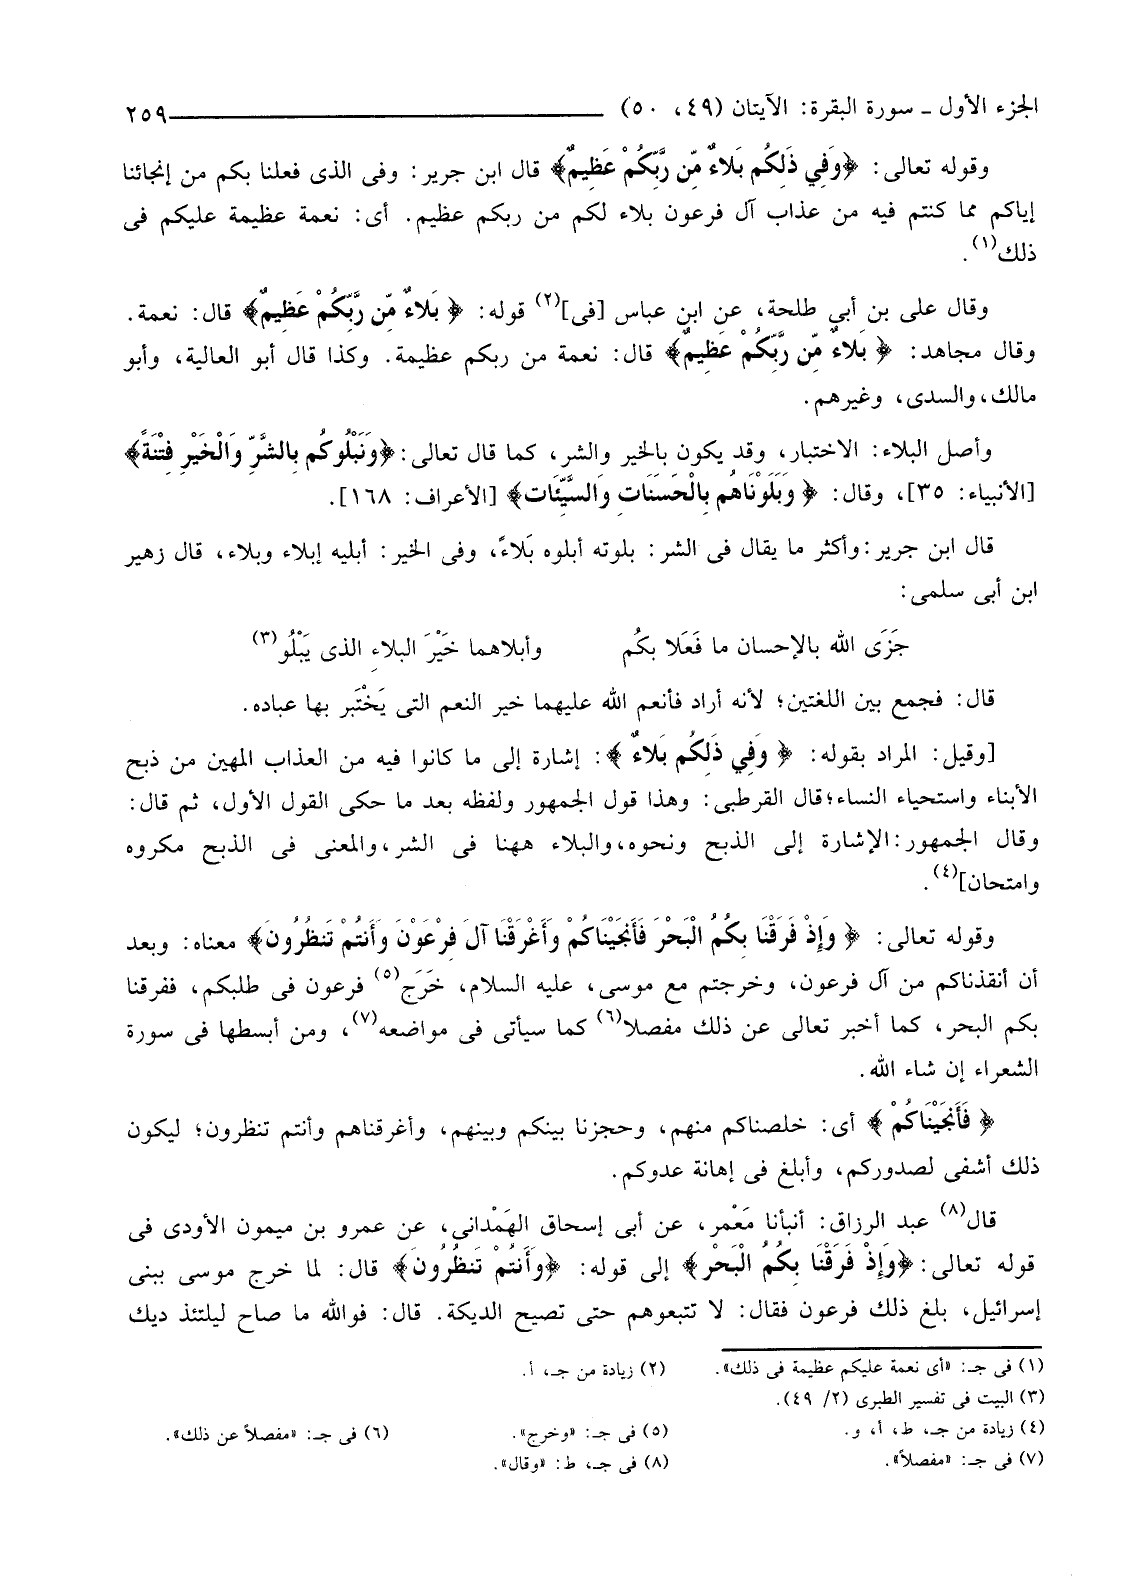 الجزء الأول ـ سورة البقرة: الآيتان (٤٩، ٥٠) ٢٥٩
وقوله تعالى: ﴿وَفِي ذَلِكُم بَلاءٌ مِّن رَّبِّكُمْ عَظِيمٌ﴾ قال ابن جرير: وفى الذى فعلنا بكم من إنجائنا
إياكم مما كنتم فيه من عذاب آل فرعون بلاء لكم من ربكم عظيم. أى: نعمة عظيمة عليكم فى
ذلك(١).
وقال على بن أبي طلحة، عن ابن عباس [فى](٢) قوله: ﴿ بَلاءٌ مِّن رَّبِّكُمْ عَظِيمٌ﴾ قال: نعمة.
وقال مجاهد: ﴿ بَلاءٌ مِّن رَّبِّكُمْ عَظِيمٌ﴾ قال: نعمة من ربكم عظيمة. وكذا قال أبو العالية، وأبو
مالك، والسدى، وغيرهم.
وأصل البلاء: الاختبار، وقد يكون بالخير والشر، كما قال تعالى: ﴿وَنَبْلُوكُم بِالشَّرِّ وَالْخَيْرِ فِتْنَةً﴾
[الأنبياء: ٣٥]، وقال: ﴿ وَبَلَوْنَاهُم بِالْحَسَنَاتِ وَالسَّيِّئَاتِ﴾ [الأعراف: ١٦٨].
قال ابن جرير: وأكثر ما يقال فى الشر: بلوته أبلوه بَلاءً، وفى الخير: أبليه إبلاء وبلاء، قال زهير
ابن أبى سلمى:
جَزَى الله بالإحسان ما فَعَلا بكُم وأبلاهما خَيْرَ البلاءِ الذى يَبْلُو(٣)
قال: فجمع بين اللغتين؛ لأنه أراد فأنعم الله عليهما خير النعم التى يَخْتَبر بها عباده.
[وقيل: المراد بقوله: ﴿ وَفِي ذَلِكُم بَلاءٌ ﴾: إشارة إلى ما كانوا فيه من العذاب المهين من ذبح
الأبناء واستحياء النساء؛ قال القرطبى: وهذا قول الجمهور ولفظه بعد ما حكى القول الأول، ثم قال:
وقال الجمهور: الإشارة إلى الذبح ونحوه، والبلاء ههنا فى الشر، والمعنى فى الذبح مكروه
وامتحان](٤).
وقوله تعالى: ﴿ وَإِذْ فَرَقْنَا بِكُمُ الْبَحْرَ فَأَنجَيْنَاكُمْ وَأَغْرَقْنَا آلَ فِرْعَوْنَ وَأَنتُمْ تَنظُرُونَ﴾ معناه: وبعد
أن أنقذناكم من آل فرعون، وخرجتم مع موسى، عليه السلام، خَرَج(٥) فرعون فى طلبكم، ففرقنا
بكم البحر، كما أخبر تعالى عن ذلك مفصلا(٦) كما سيأتى فى مواضعه(٧)، ومن أبسطها فى سورة
الشعراء إن شاء الله.
﴿ فَأَنجَيْنَاكُمْ ﴾ أى: خلصناكم منهم، وحجزنا بينكم وبينهم، وأغرقناهم وأنتم تنظرون؛ ليكون
ذلك أشفى لصدوركم، وأبلغ فى إهانة عدوكم.
قال(٨) عبد الرزاق: أنبأنا مَعْمر، عن أبى إسحاق الهَمْدانى، عن عمرو بن ميمون الأودى فى
قوله تعالى: ﴿وَإِذْ فَرَقْنَا بِكُمُ الْبَحْرَ﴾ إلى قوله: ﴿وَأَنتُمْ تَنظُرُونَ﴾ قال: لما خرج موسى ببنى
إسرائيل، بلغ ذلك فرعون فقال: لا تتبعوهم حتى تصيح الديكة. قال: فوالله ما صاح ليلتئذ ديك
(١) فى جـ: «أى نعمة عليكم عظيمة فى ذلك». (٢) زيادة من جـ، أ.
(٣) البيت فى تفسير الطبرى (٢/ ٤٩).
(٤) زيادة من جـ، ط، أ، و. (٥) فى جـ: «وخرج». (٦) فى جـ: «مفصلاً عن ذلك».
(٧) فى جـ: «مفصلاً». (٨) فى جـ، ط: «وقال».